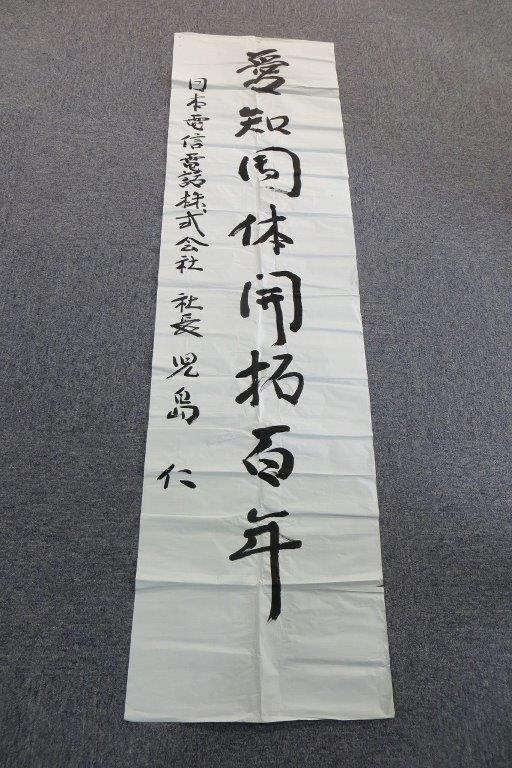 愛知団体開拓百年
日本電信電話株式会社 社長 児島 仁